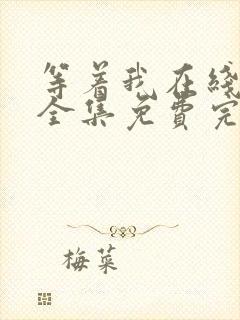 等着我在线
全集免费完
梅菜